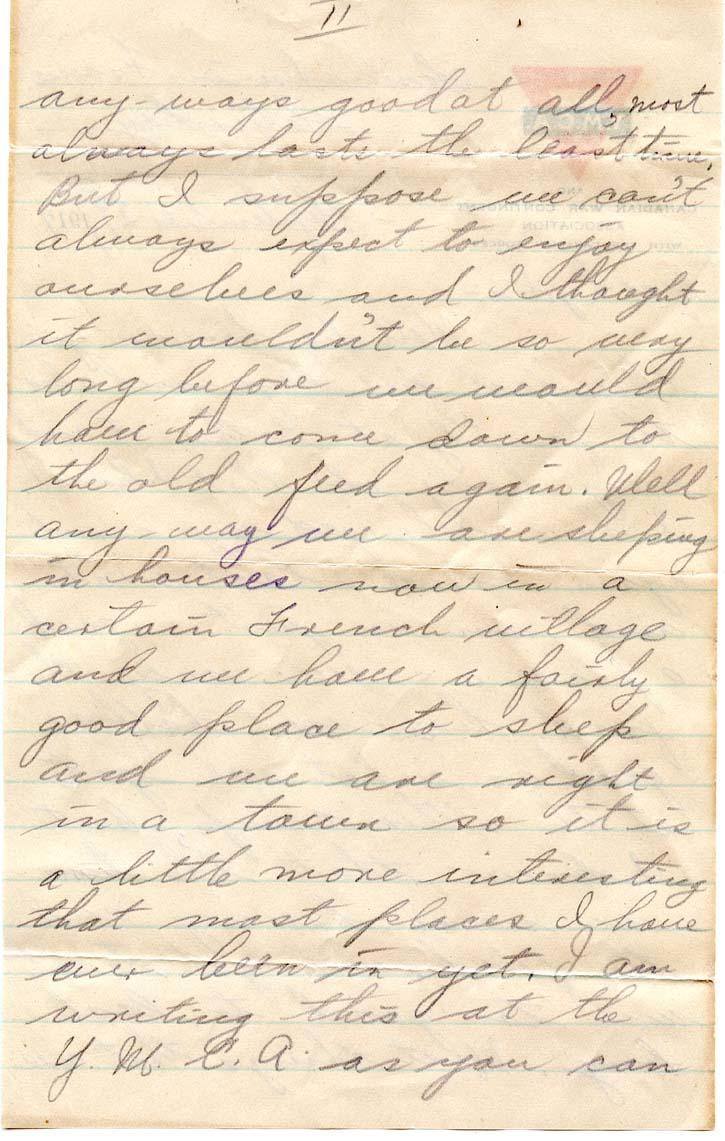 II
any-ways good at all, most
always lasts the least time.
But I suppose we can't
always expect to enjoy
ourselves and I thought
it wouldn't be so very
long before we would
have to come down to
the old feed again. Well
any-way we are sleeping
in houses now in a
certain French village
and we have a fairly
good place to sleep
and we are right
in a town so it is
a little more interesting
that most places I have
ever been in yet. I am
writing this at the
Y. M. C. A. as you can